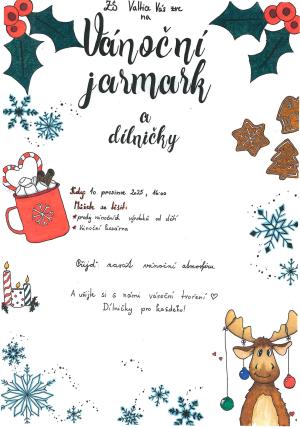 ZŠ Valtia Vás zve
na
Vánoční
jarmark
a
dílničky
Kdy: 10. prosince 2025, 16:00
Můžete se těšit:
*prodej vánočních výrobků od dětí
*Vánoční kavárna
Přijď navát vánoční atmosféru
A užijte si s námi vánoční tvoření ♡
Dílničky pro každého!